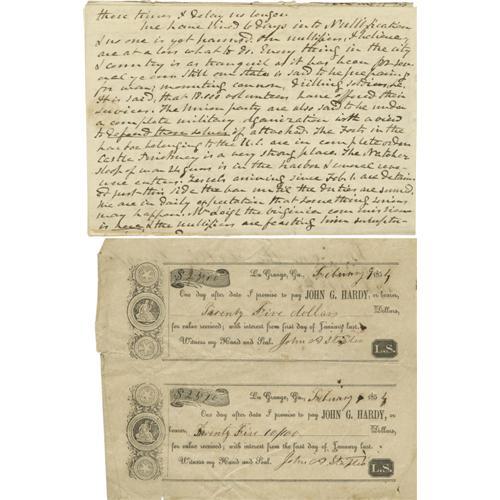 these times I delay no longer
We have lived 6 days into Nullification
& no one is yet The nullifiers, I believe,
are at a loss what to do. Every thing in the city
& country is as tranquil as it has been for
Still our state is said to be preparing
for war, mounting cannon, drilling soldiers, &c.
It is said, that volunteers have offered their
services. The Union party are also said to be under
a complete military organization with a view
to defend themselves if attacked. The Forts in the
harbor belonging to the U.S. are in complete order
Castle Pinckney is a very strong place. The Natchez
sloop of war 24 guns is in the harbor & several
cutters. Vessels arriving since Feb. 1 are
just this side the bar until the duties are
we are in daily expectation that something serious
may happen. Mr Leigh the virginia commissioner
is here, & the nullifiers are feasting him
$25.00 La Grange, Ga., February 9 1854
One day after date I promise to pay JOHN G. HARDY, or bearer,
Twenty Five dollars Dollars,
for value received; with interest from first day of January last.
Witness my Hand and Seal. John L.S.
$25.10 La Grange, Ga., February 9 1854
One day after date I promise to pay JOHN G. HARDY, or
bearer, Twenty Five 10/100 Dollars,
for value received; with interest from the first day of January last.
Witness my Hand and Seal. John L.S.